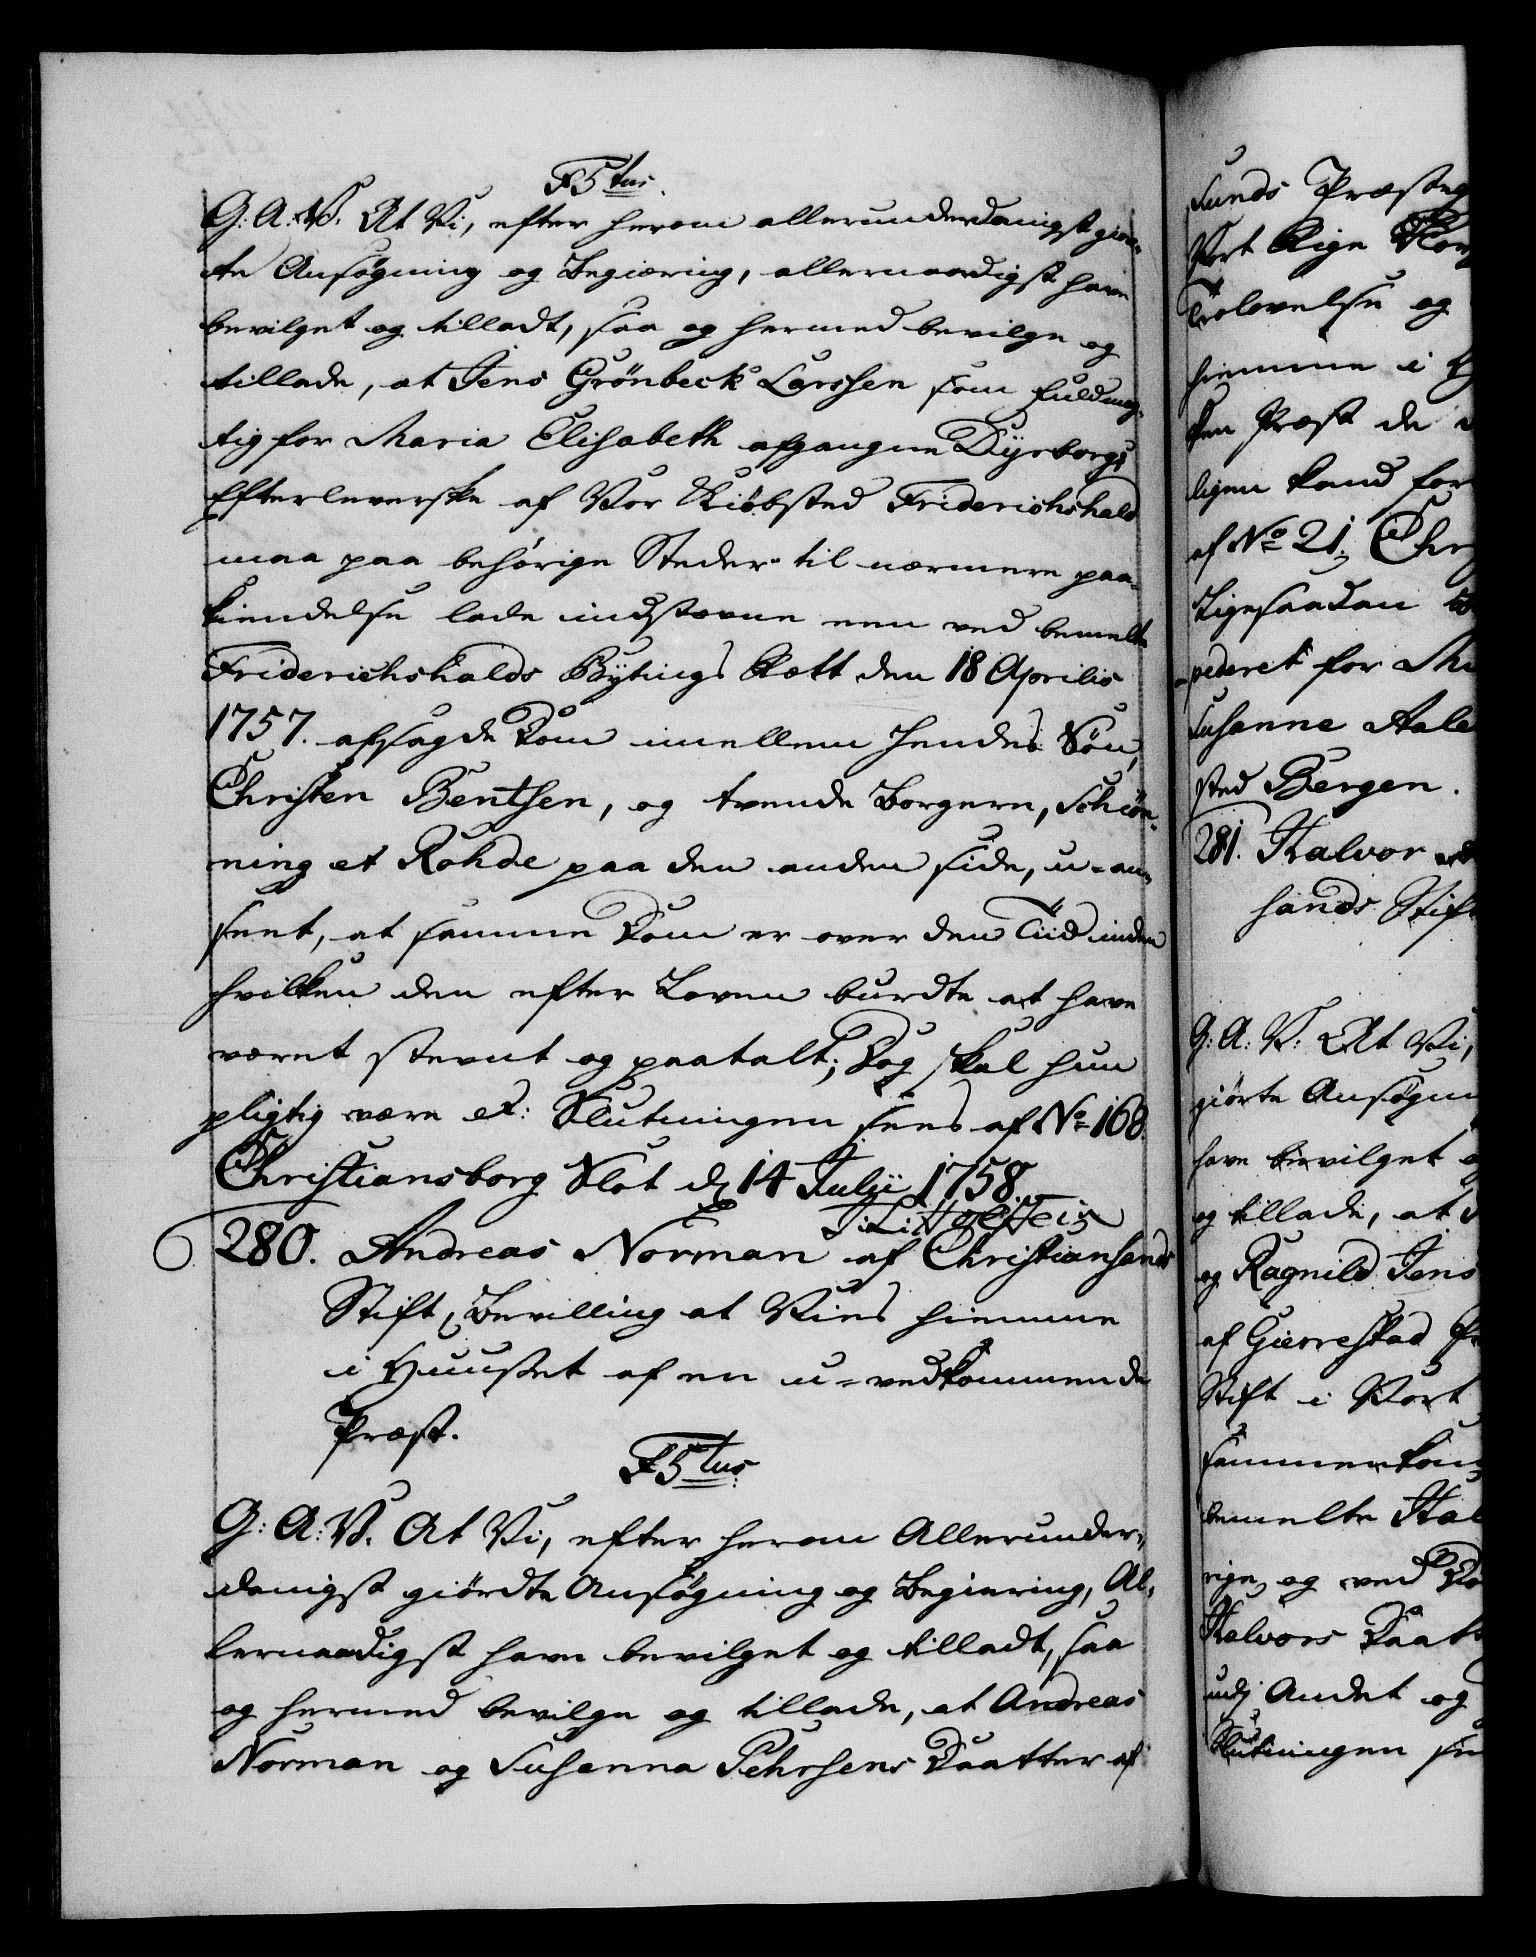 F5tus.
G: A: V: At Vi, efter herom allerunderdanigst giør-
te Ansøgning og Begiæring, allernaadigst have
bevilget og tilladt, saa og hermed bevilge og
tillade, at Jens Grönbeck Larssen som fuldmæg-
tig for Maria Elisabeth afgangne Dyrborgs
Efterleverske af Vor Kiöbsted Friderichshald
maa paa behörige Steder til nærmere paa-
kiendelse lade indstævne een ved bemelte
Friderichshalds Bytings Rætt den 18 Aprilis
1757. afsagde Dom imellem hendes Sön,
Christen Bentsen, og tvende Borgere, Schiön-
ning et Rohde paa den anden side, u-an-
seet, at samme Dom er over den Tiid inden
hvilken den efter Loven burdte at have
været stevnt og paatalt; Dog skal hun
pligtig være et: Slutningen sees af No 168.
Christiansborg Slot d 14 Julii 1758
T: L: Holstein
280. Andreas Norman af Christiansands
Stift, Bevilling at Vies hiemme
i Huuset af en u-vedkommende
Præst.
F5tus.
G: A: V. At Vi, efter herom Allerunder-
danigst giördte Ansögning og Begiering, Al-
lernaadigst have bevilget og tilladt, saa
og hermed bevilge og tillade, at Andreas
Norman og Susanna Pehrsens Daatter af
sunds Præsteg
Vort Rige Nor
Trolovelse og
hiemme i
Præst de
ligen kand for
af No 21. Chr
Ligesaadan
pederet for
Susanne Aale
sted Bergen.
281. Halvor
sands Stift
G: A: V: At Vi,
giörte Ansögn
have bevilget
og tillade, at
og Ragnild Jens
af Gierrestad
Stift i Vort
sammenkom
bemelte Hal
rige, og ved
Halvors Daat
udj Andet og
Slutningen see